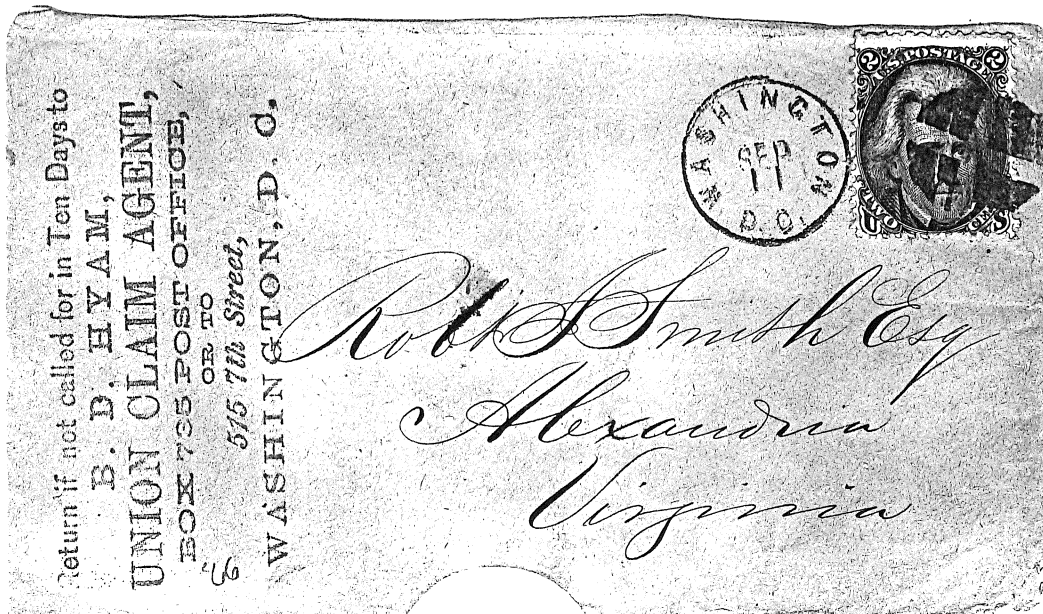 Return if not called for in Ten Days to
B. D. HYAM,
UNION CLAIM AGENT,
BOX 735 POST OFFICE,
OR TO
515 7th Street,
WASHINGTON, D. C.
WASHINGTON
SEP
11
D.C.
2 U.S. POSTAGE 2
TWO CENTS
U S
Robt Smith Esq
Alexandria
Virginia